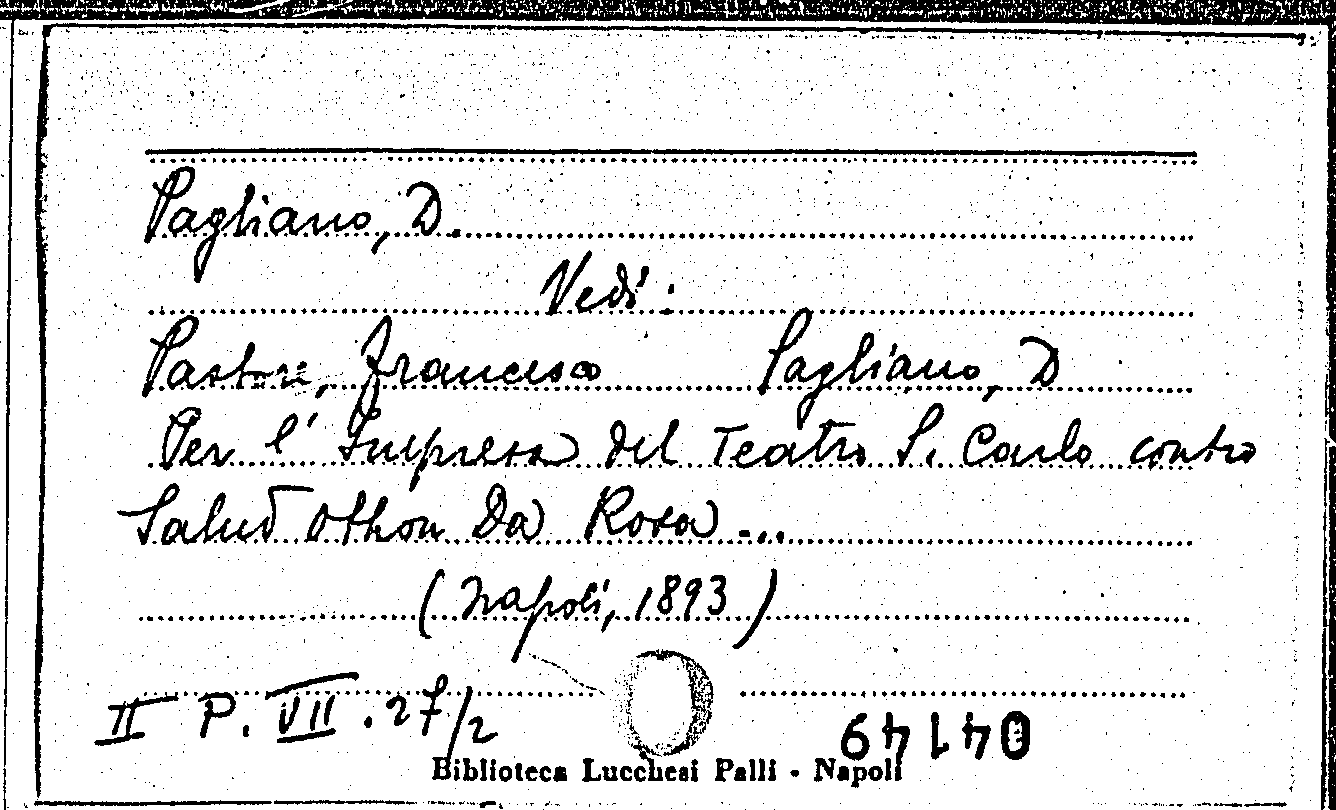 Pagliano, D.
Vedi:
Pastore, Francesco Pagliano, D
Per l'Impresa del Teatro S. Carlo contro
Salud Othon Da Rosa ...
(Napoli, 1893)
II P. VII .27/2
04149
Biblioteca Lucchesi Palli - Napoli